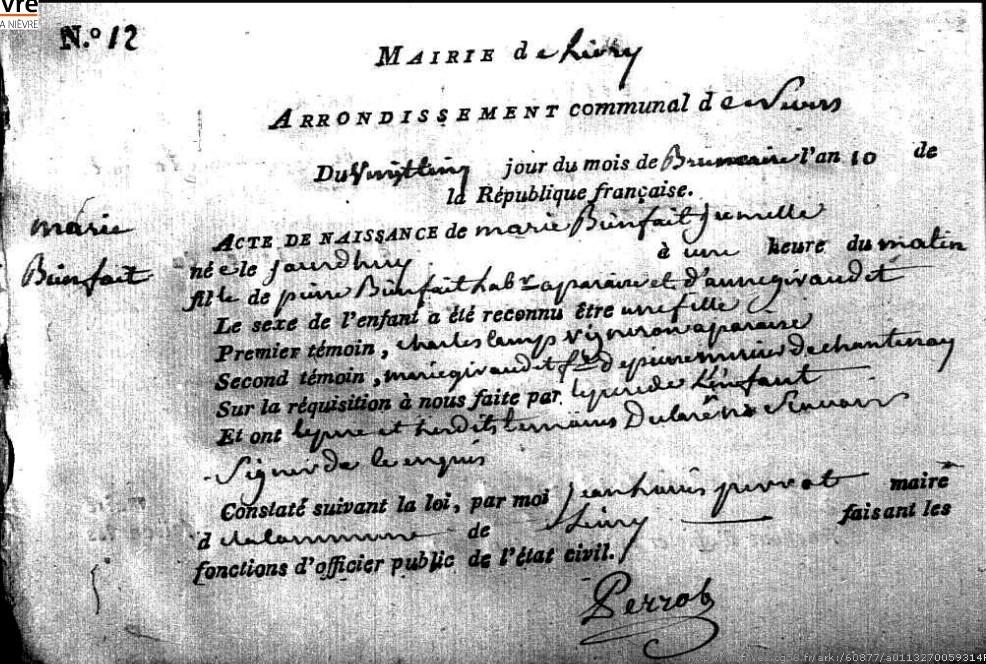 vre
A NIÈVRE
N.º 12
MAIRIE de Livry
ARRONDISSEMENT communal de Nevers
Du Vingt jour du mois de Brumaire l'an 10 de
la République française.
marie
Bienfait
ACTE DE NAISSANCE de marie Bienfait jumelle
née le jourdhuy à une heure du matin
fille de pierre Bienfait habt aparaise et d'anne giraudet
Le sexe de l'enfant a été reconnu être une fille
Premier témoin, charles lamp vigneron aparaise
Second témoin, marie giraudet fe de pierre de chantenay
Sur la réquisition à nous faite par le pere de L'enfant
Et ont le pere et temoins Declaré ne Scavoir
Signer de ce enquis
Constaté suivant la loi, par moi jean perrot maire
d ela Commune de Livry faisant les
fonctions d'officier public de l'état civil.
Perrot